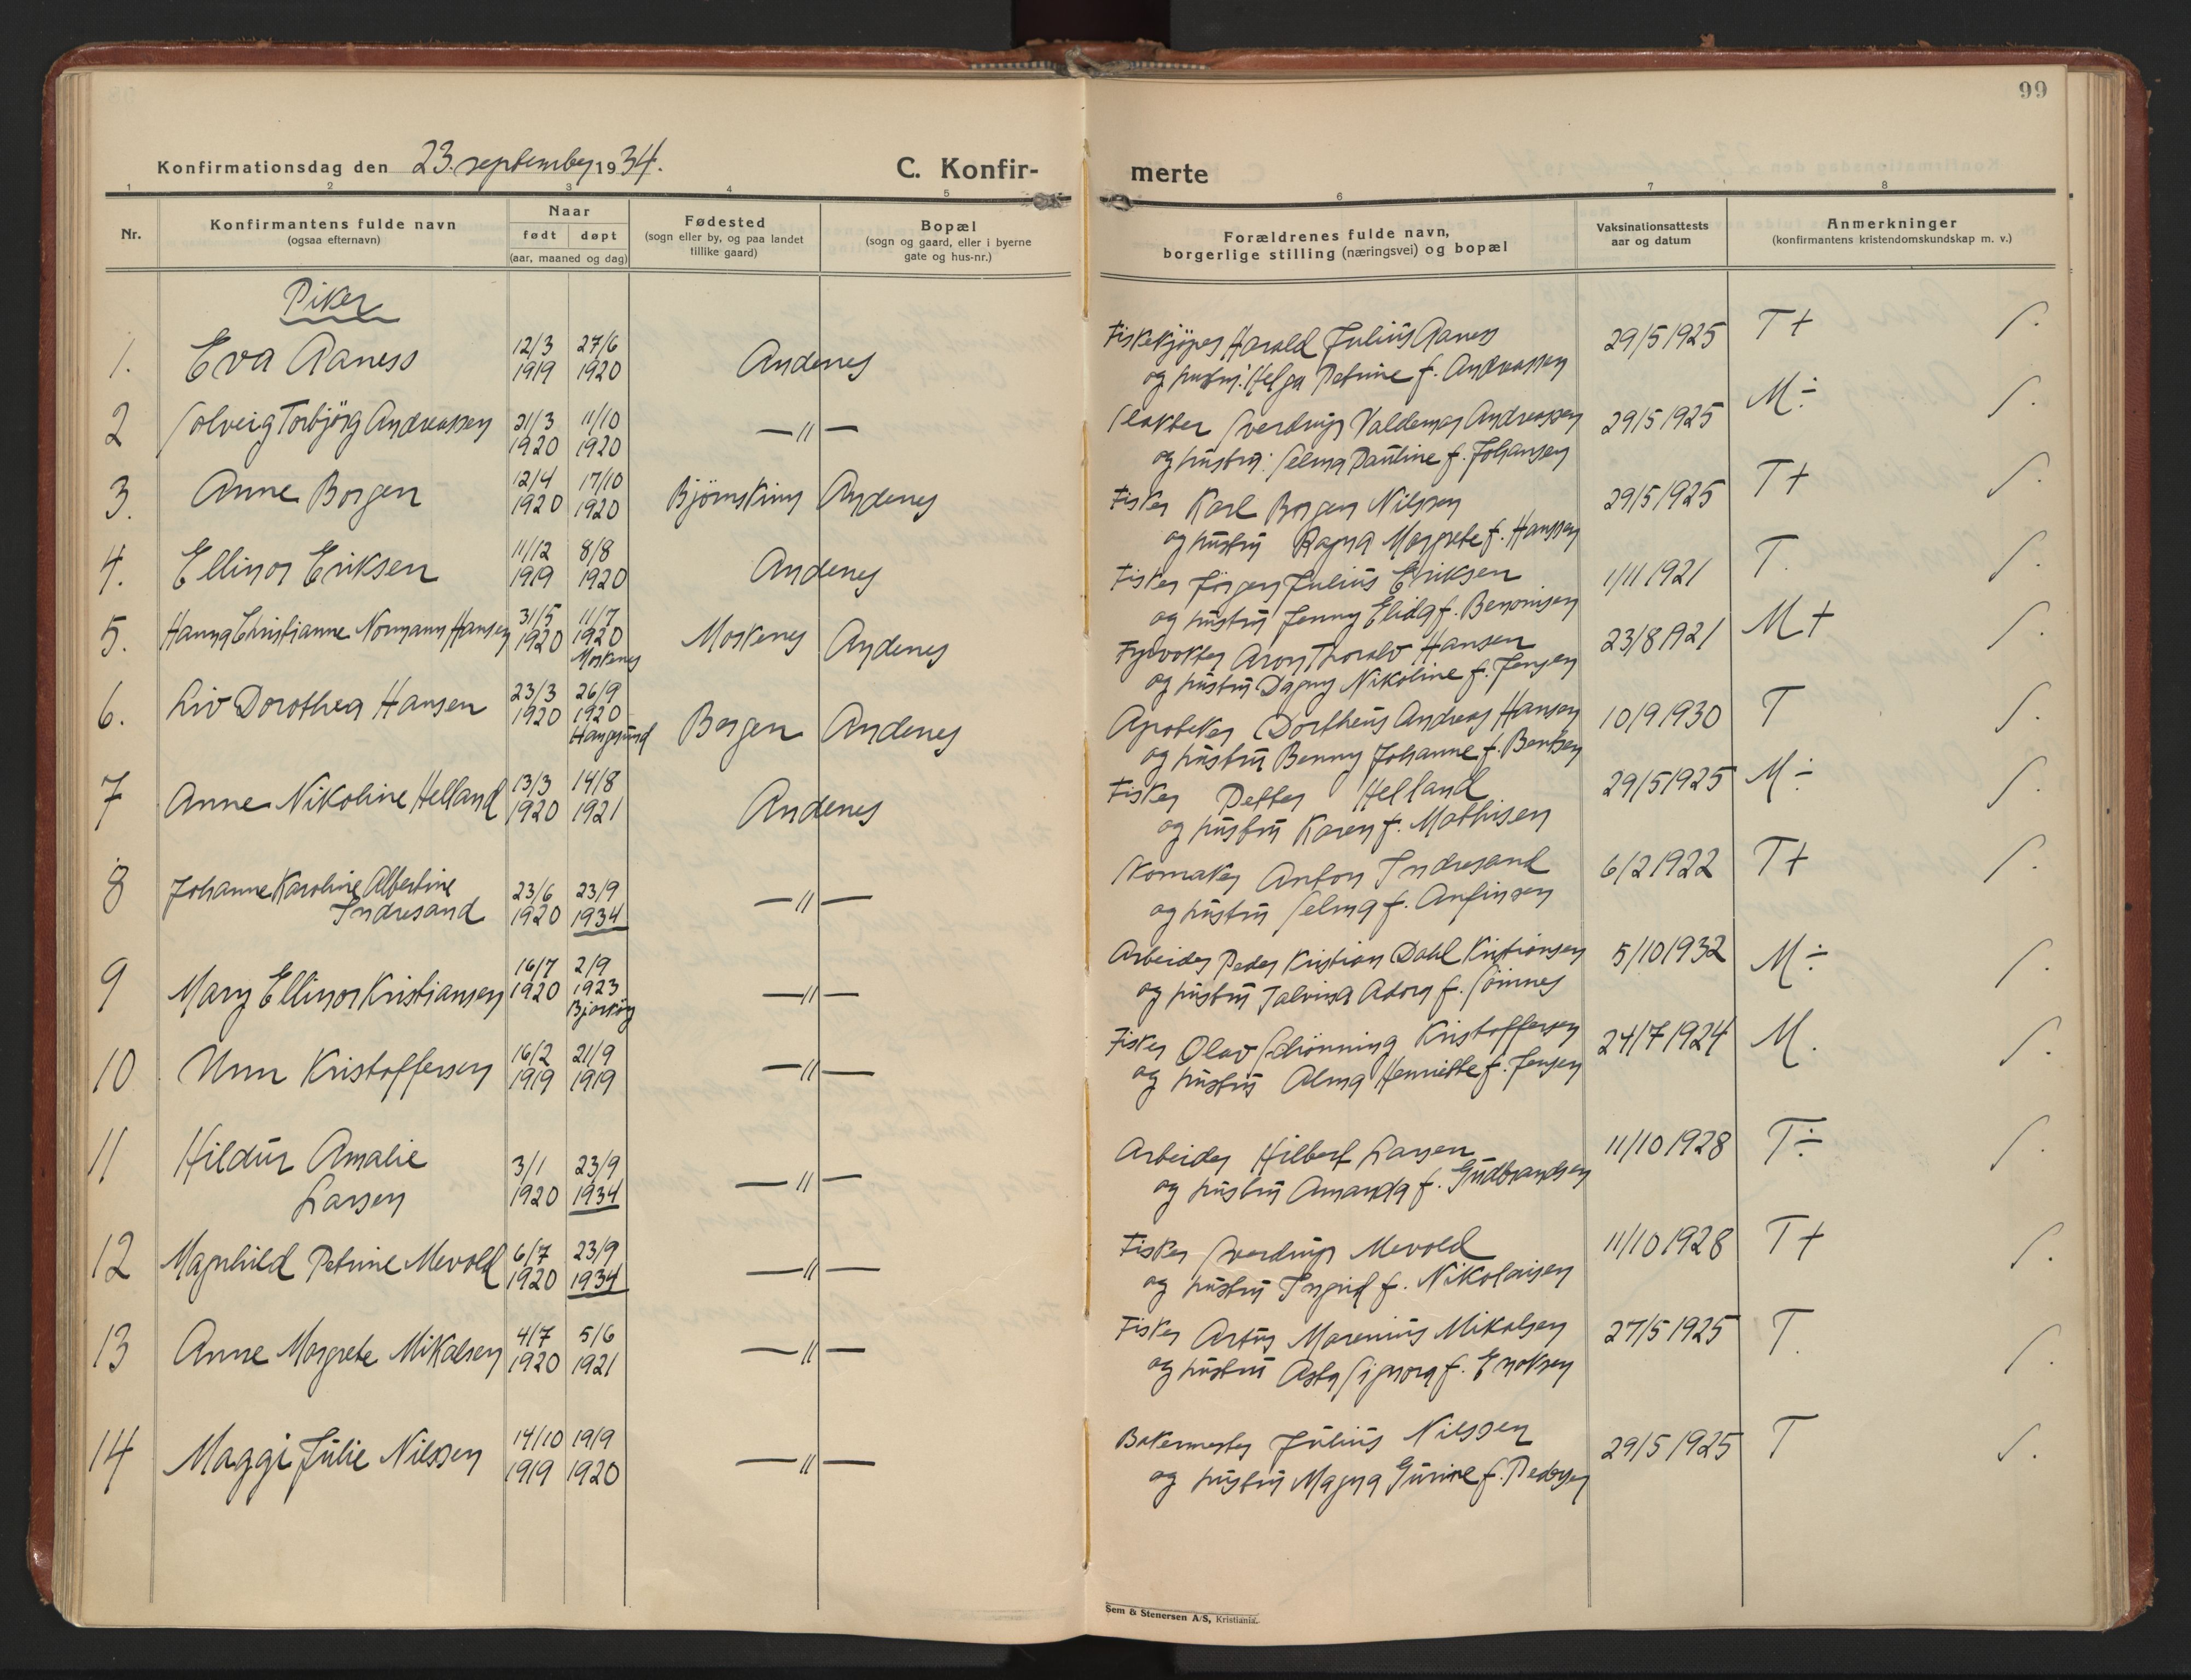 99
Konfirmationsdag den 23. september 1934.
C. Konfir-
merte
1 2 3 4 5 6 7 8
Nr.
Konfirmantens fulde navn
(ogsaa efternavn)
Naar
født døpt
(aar, maaned og dag)
Fødested
(sogn eller by, og paa landet
tillike gaard)
Bopæl
(sogn og gaard, eller i byerne
gate og hus-nr.)
Forældrenes fulde navn,
borgerlige stilling (næringsvei) og bopæl
Vaksinationsattests
aar og datum
Anmerkninger
(konfirmantens kristendomskundskap m. v.)
Piker
1. Eva Aaness 12/3 1919 27/6 1920 Andenes
Fiskekjøper Harald Julius Aaness
og hustru: Helga Petrine f. Andreassen
29/5 1925 T+ S.
2 Solveig Torbjörg Andreassen 21/3 1920 11/10 1920 —"—
Slakter Sverdrup Valdemar Andreassen
og hustru: Selma Pauline f. Johansen
29/5 1925 M÷ S.
3. Anne Borgen 12/4 1920 17/10 1920 Bjørnskinn Andenes
Fisker Karl Borgen Nilssen
og hustru Ragna Margrete f. Hanssen
29/5 1925 T+ S.
4. Ellinor Eriksen 11/12 1919 8/8 1920 Andenes
Fisker Jörgen Julius Eriksen
og hustru Jenny Elida f. Benonisen
1/11 1921 T. S.
5. Hanna Christianne Normann Hansen 31/5 1920 11/7 1920 Moskenes Moskenes Andenes
Fyrvokter Aron Thoralv Hansen
og hustru Dagny Nikoline f. Jensen
23/8 1921 M+ S.
6. Liv Dorothea Hansen 23/3 1920 26/9 1920 Haugesund Bergen Andenes
Apoteker Dortheus Andreas Hansen
og hustru Benny Johanne f. Bentsen
10/9 1930 T S.
7 Anne Nikoline Helland 13/3 1920 14/8 1921 Andenes
Fisker Petter Helland
og hustru Karen f. Mathisen
29/5 1925 M÷ S.
8 Johanne Karoline Albertine
Indresand 23/6 1920 23/9 1934 —"—
Skomaker Anton Indresand
og hustru Selma f. Anfinsen
6/2 1922 T+ S.
9 Mary Ellinor Kristiansen 16/7 1920 2/9 1923 —"—
Arbeider Peder Kristian Dahl Kristiansen
og hustru Jalvina Adorn f.
5/10 1932 M÷ S.
10 Unn Kristoffersen 16/2 1919 21/9 1919 —"—
Fisker Olav Schönning Kristoffersen
og hustru Alma Henriette f. Jensen
24/7 1924 M. S.
11 Hildur Amalie
Larsen 3/1 1920 23/9 1934 —"—
Arbeider Hilbert Larsen
og hustru Amanda f. Gudbrandsen
11/10 1928 T÷ S.
12 Magnhild Petrine Mevold 6/7 1920 23/9 1934 —"—
Fisker Sverdrup Mevold
og hustru Ingrid f. Nikolaisen
11/10 1928 T+ S.
13 Anne Margrete Mikalsen 4/7 1920 5/6 1921 —"—
Fisker Artur Marenius Mikalsen
og hustru Asta Signora f. Enoksen
27/5 1925 T. S.
14 Maggi Julie Nilssen 14/10 1919 19/9 1920 —"—
Bakermester Julius Nilssen
og hustru Magna Gurine f. Pedersen
29/5 1925 T S.
Sem & Stenersen A/S, Kristiania.